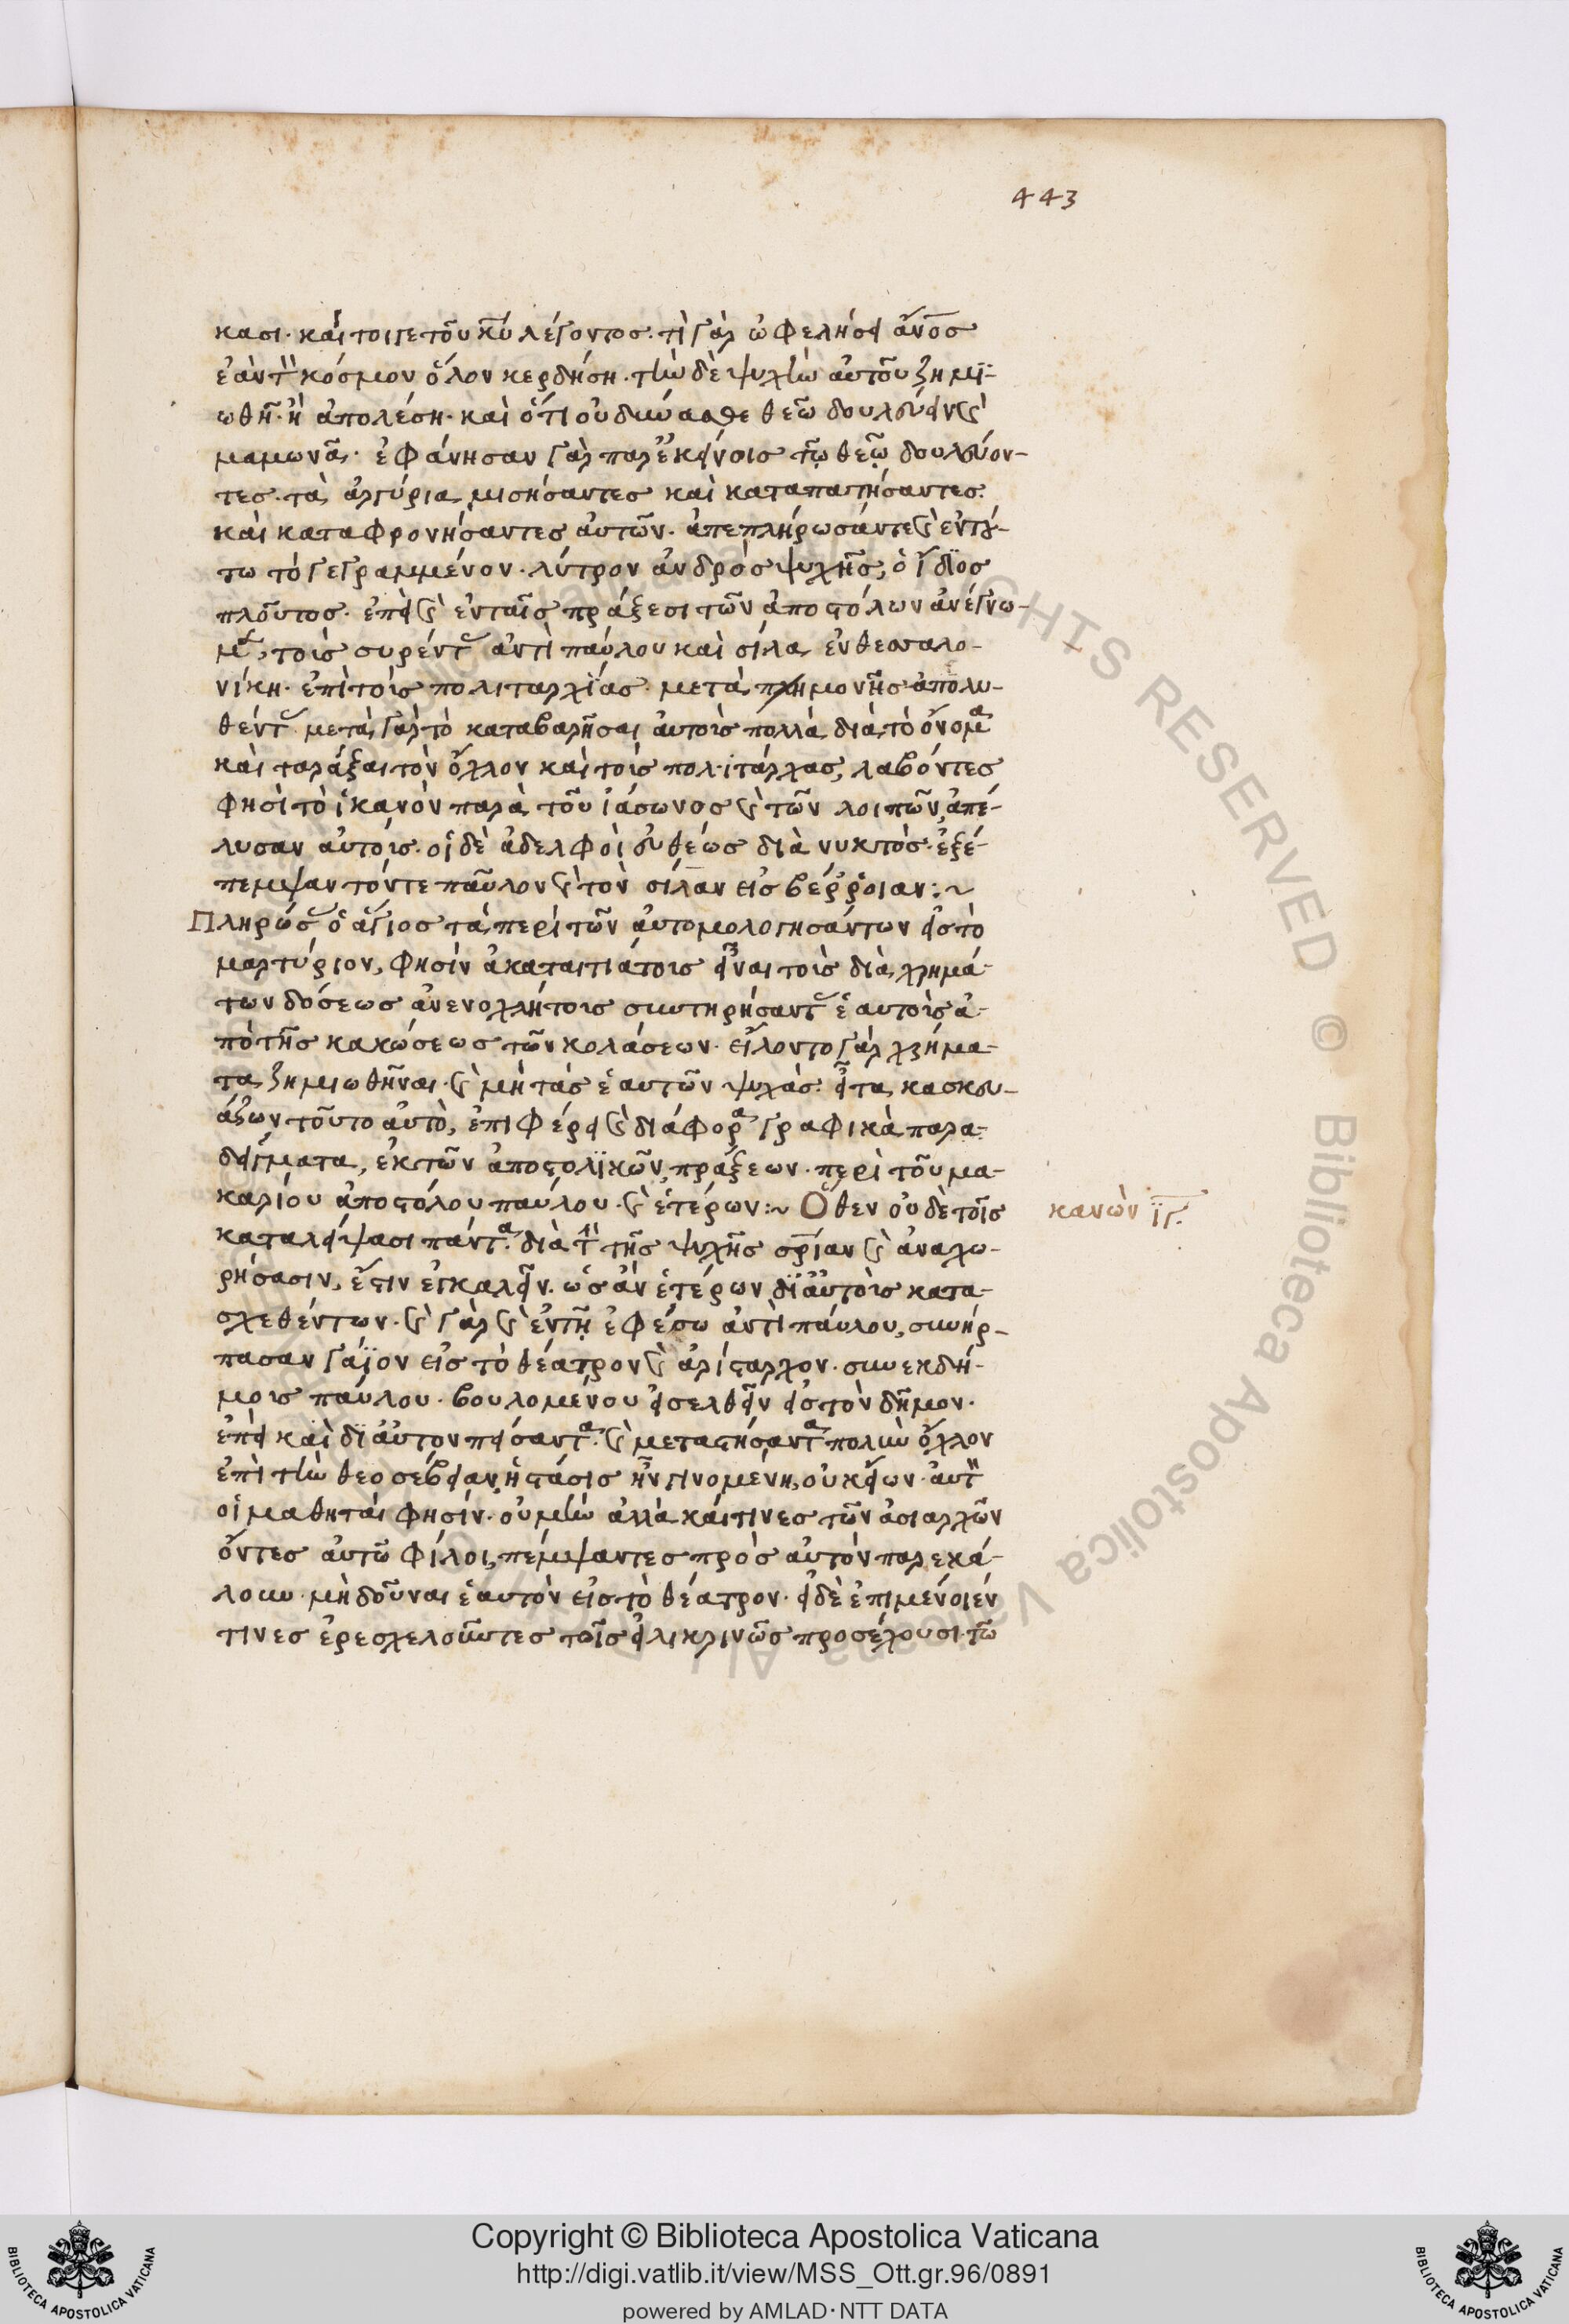 443
κασι· καίτοιγε τοῦ κ̅υ̅ λέγοντος· τί γὰρ ὠφελήσει ἄν̅ο̅ς̅
ἐὰν τὸν κόσμον ὅλον κερδήση· τὴν δὲ ψυχὴν αὐτοῦ ζημϊ-
ωθῆ· ἢ ἀπολέση· καὶ ὅτι οὐ δύνασθε θεῶ δουλεύειν καὶ
μαμωνᾶ· ἐφάνησαν γὰρ παρ' ἐκείνοις τῷ θεῷ δουλεύον-
τες· τὰ ἀργύρια μισήσαντες καὶ καταπατήσαντες·
καὶ καταφρονήσαντες αὐτῶν· ἀπεπλήρωσάν τε καὶ ἐν τού-
τω τὸ γεγραμμένον· λύτρον ἀνδρὸς ψυχῆς, ὁ ἴδϊος
πλοῦτος· ἐπεὶ καὶ ἐν ταῖς πράξεσι τῶν ἀποστόλων ἀνέγνω-
μεν, τοὺς συρέντας ἀντὶ παύλου καὶ σίλα ἐν θεσσαλο-
νίκη· ἐπὶ τοὺς πολιταρχίας· μετὰ πλημονῆς ἀπολυ-
θέντας· μετὰ γὰρ τὸ καταβαρῆσαι αὐτοὺς πολλὰ διὰ τὸ ὄνομα
καὶ ταράξαι τὸν ὄχλον καὶ τοὺς πολιτάρχας, λαβόντες
φησὶ τὸ ἱκανὸν παρὰ τοῦ ἰάσωνος καὶ τῶν λοιπῶν, ἀπέ-
λυσαν αὐτούς· οἱ δὲ ἀδελφοὶ εὐθέως διὰ νυκτὸς ἐξέ-
πεμψαν τόν τε παῦλον καὶ τὸν σίλαν εἰς βέρροιαν:~
Πληρώσας ὁ ἅγιος τὰ περὶ τῶν αὐτομολογησάντων εἰς τὸ
μαρτύριον, φησὶν ἀκαταιτιάτους εἶναι τοὺς διὰ χρημά-
των δόσεως ἀνενοχλήτους συντηρήσαντας ἑαυτοὺς ἀ-
πὸ τῆς κακώσεως τῶν κολάσεων· εἵλοντο γὰρ χρήμα-
τα ζημιωθῆναι· καὶ μὴ τὰς ἑαυτῶν ψυχάς· εἶτα κασκευ-
άζων τοῦτο αὐτὸ, ἐπιφέρει καὶ διάφορα γραφικὰ παρα-
δείγματα, ἐκ τῶν ἀποστολϊκῶν πράξεων· περὶ τοῦ μα-
καρίου ἀποστόλου παύλου· καὶ ἑτέρων:~ Ὅθεν οὐδὲ τοῖς
κανὼν ι̅γ̅.
καταλείψασι πάντα· διὰ τὴν τῆς ψυχῆς σ̅ρ̅ίαν καὶ ἀναχω-
ρήσασιν, ἔστιν ἐγκαλεῖν· ὡς ἂν ἑτέρων δϊ αὐτοὺς κατα-
σχεθέντων· καὶ γὰρ καὶ ἐν τῇ ἐφέσω ἀντὶ παύλου, συνήρ-
πασαν γάϊον εἰς τὸ θέατρον καὶ ἀρίσταρχον· συνεκδή-
μους παύλου· βουλομένου εἰσελθεῖν εἰς τὸν δῆμον·
ἐπεὶ καὶ δϊ αὐτὸν πείσαντα· καὶ μεταστήσαντα πολὺν ὄχλον
ἐπὶ τὴν θεοσέβειαν, ἡ στάσις ἦν γινομένη, οὐκ εἴων αὐτὸν
οἱ μαθηταὶ φησίν· οὐ μὴν ἀλλὰ καί τινες τῶν ἀσιαρχῶν
ὄντες αὐτῶ φίλοι, πέμψαντες πρὸς αὐτὸν παρεκά-
λουν· μὴ δοῦναι ἑαυτὸν εἰς τὸ θέατρον· εἰ δὲ ἐπιμένοιέν
τινες ἐρεσχελοῦντες τοῖς εἰλικρινῶς προσέχουσι τῶ
Copyright © Biblioteca Apostolica Vaticana
http://digi.vatlib.it/view/MSS_Ott.gr.96/0891
powered by AMLAD·NTT DATA